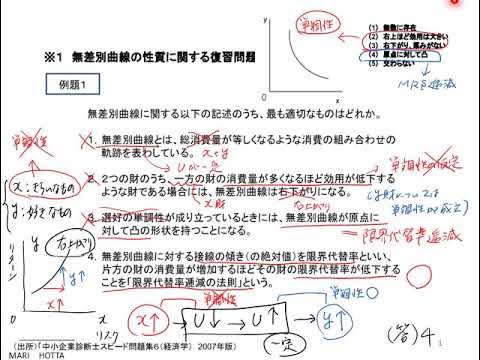 単調性
y
x
(1) 無数に存在
(2) 右上ほど効用は大きい
(3) 右下がり、厚みがない
(4) 原点に対して凸
(5) 交わらない
MRS逓減
※1 無差別曲線の性質に関する復習問題
例題1
無差別曲線に関する以下の記述のうち、最も適切なものはどれか。
単調性
1. 無差別曲線とは、総消費量が等しくなるような消費の組み合わせの
軌跡を表わしている。 x+y
Uが一定
単調性の仮定
2. 2つの財のうち、一方の財の消費量が多くなるほど効用が低下する
ような財である場合には、無差別曲線は右下がりになる。
x財
右上がり
x:きらいなもの
y:好きなもの
3. 選好の単調性が成り立っているときには、無差別曲線が原点に
対して凸の形状を持つことになる。
=限界代替率逓減
4. 無差別曲線に対する接線の傾き(の絶対値)を限界代替率といい、
片方の財の消費量が増加するほどその財の限界代替率が低下する
ことを「限界代替率逓減の法則」という。
リターン
y
右上がり
y↑
x↑
x
リスク
単調性
単調性
x↑ U↓ U↑ y↑
一定
(答)4
(出所)「中小企業診断士スピード問題集6(経済学) 2007年版」
MARI HOTTA
1